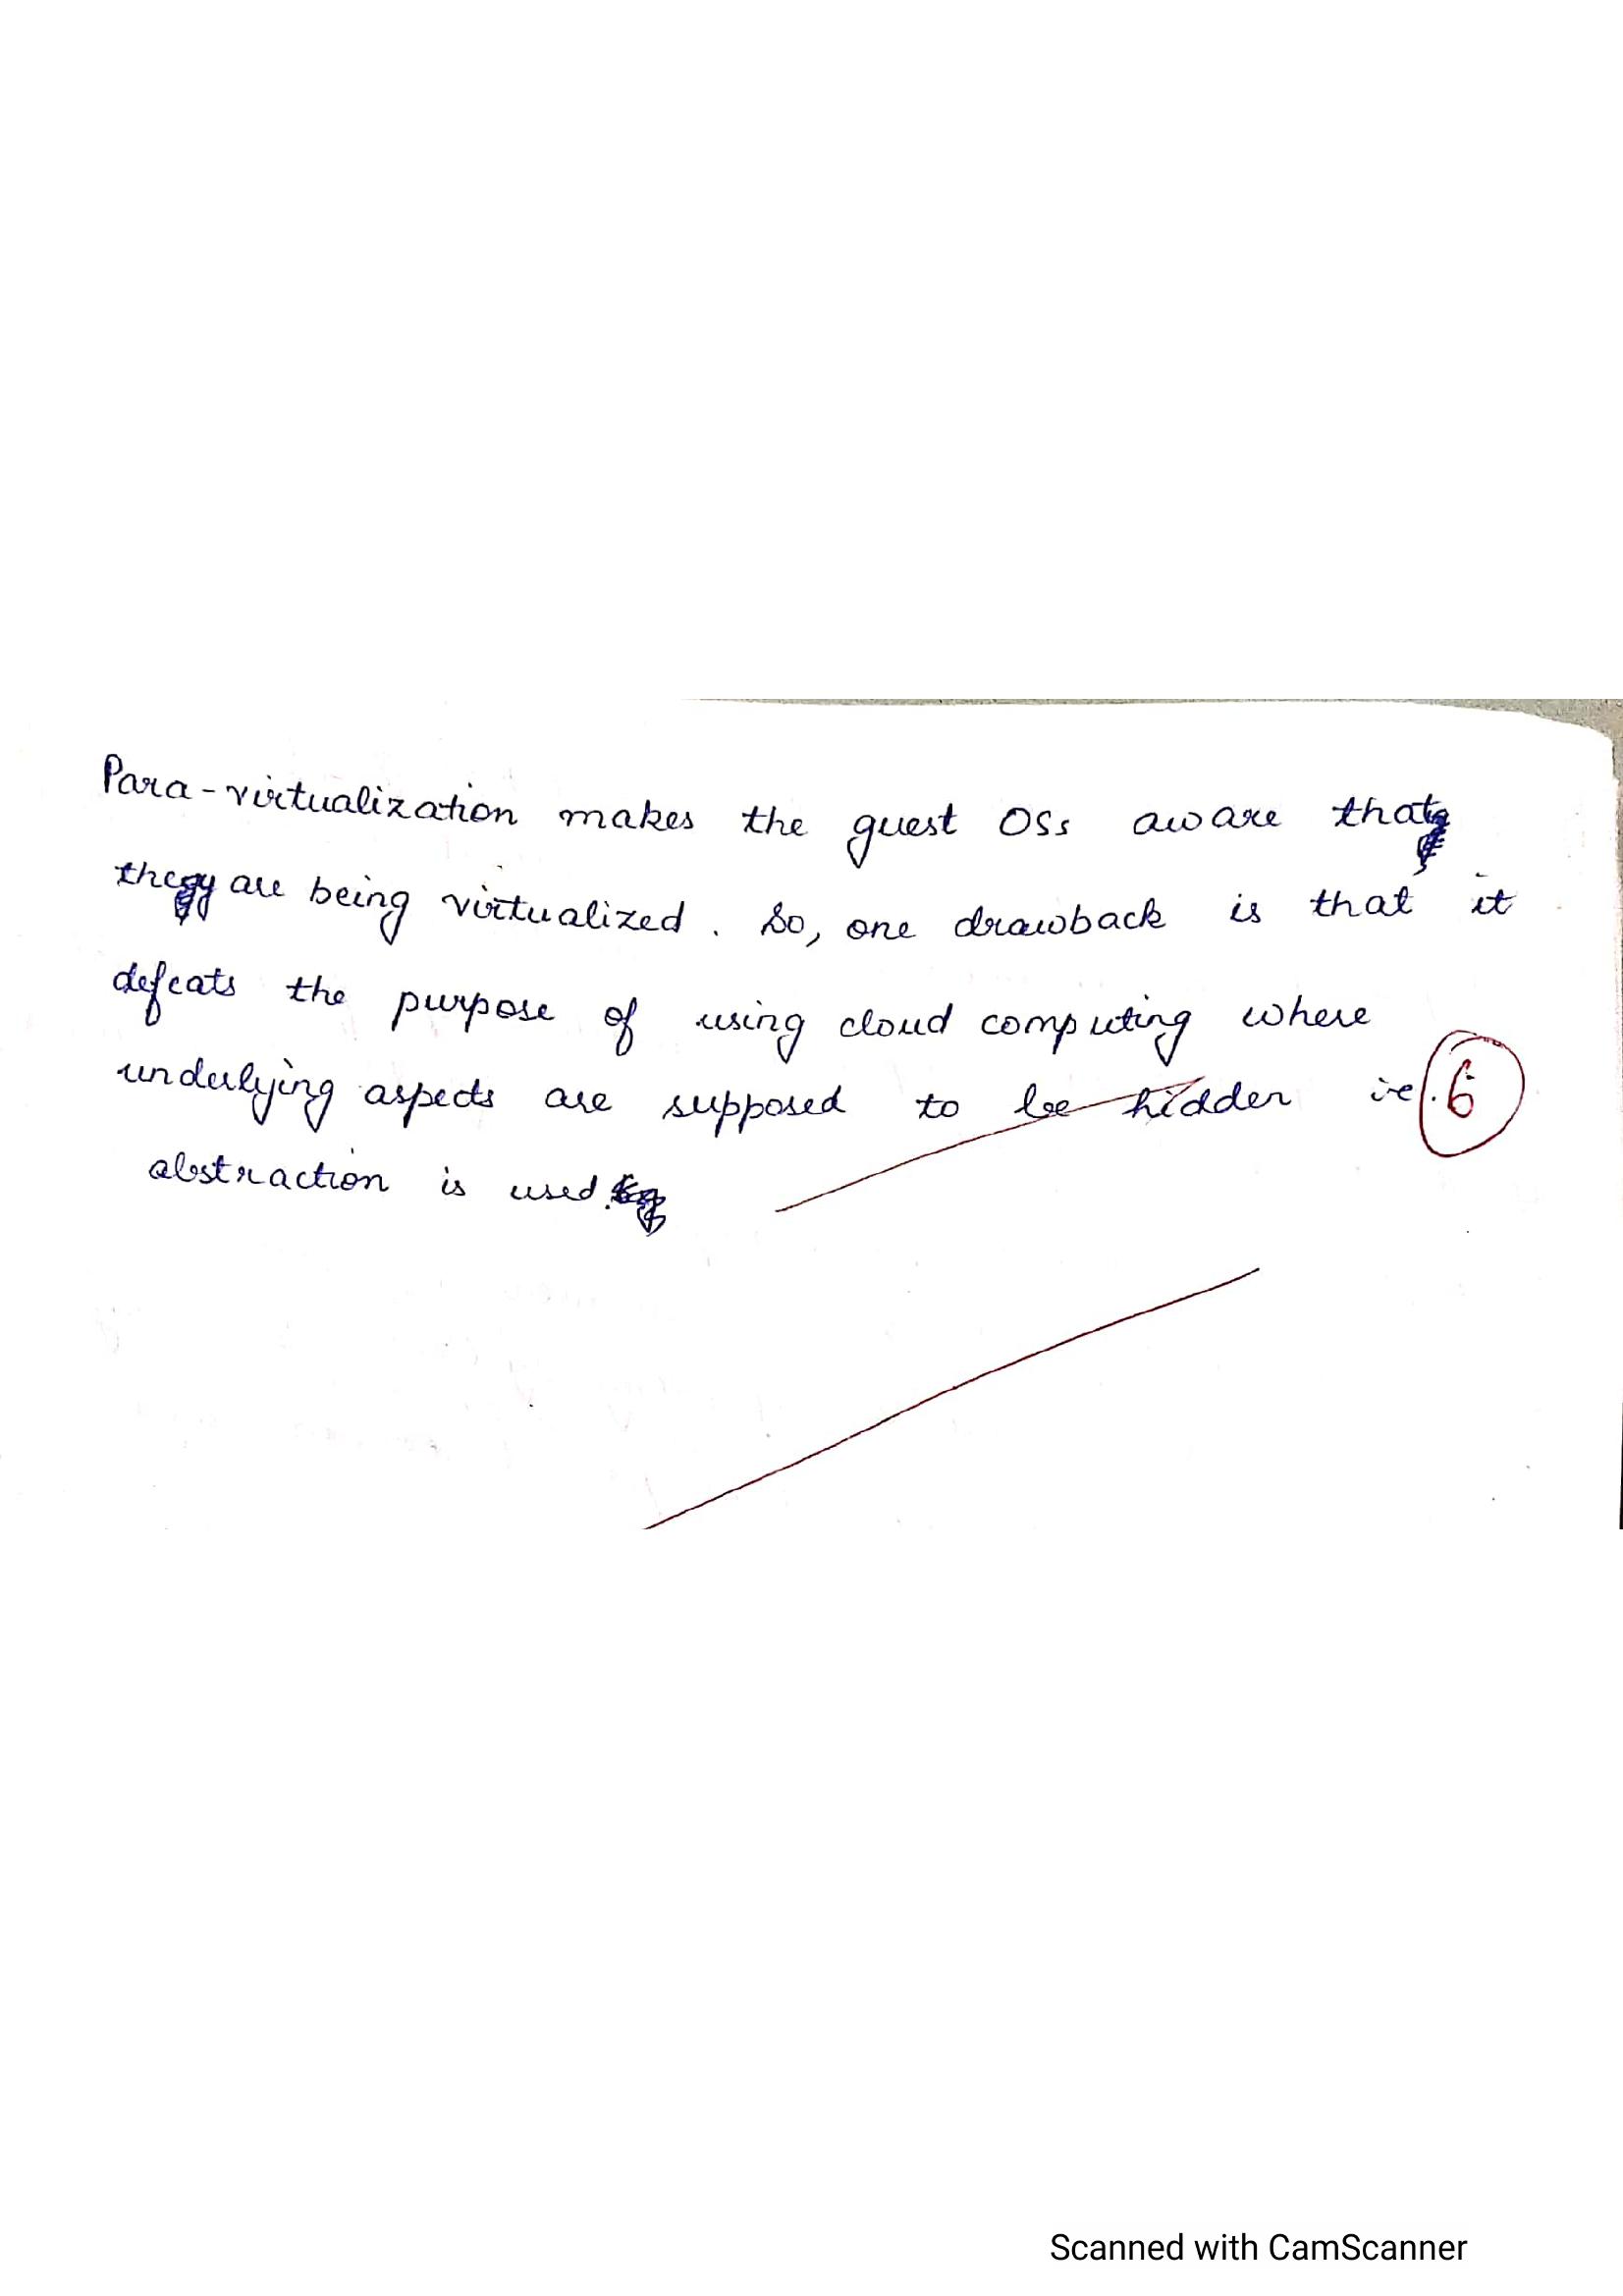 Para-virtualization makes the guest OSs aware that
they are being virtualized. So, one drawback is that it
defeats the purpose of using cloud computing where
underlying aspects are supposed to be hidden ie.
6
abstraction is used.
Scanned with CamScanner